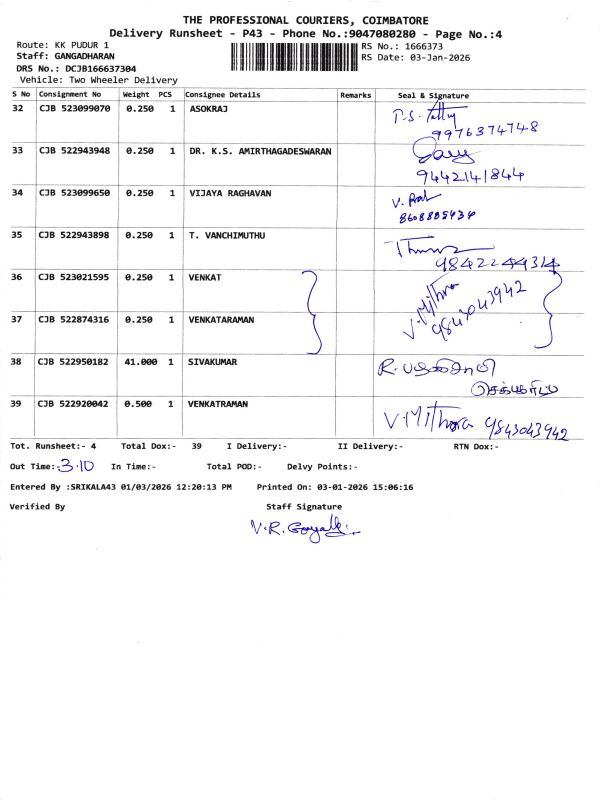 THE PROFESSIONAL COURIERS, COIMBATORE
Delivery Runsheet - P43 - Phone No.:9047080280 - Page No.:4
Route: KK PUDUR 1
Staff: GANGADHARAN
DRS No.: DCJB166637304
Vehicle: Two Wheeler Delivery
RS No.: 1666373
RS Date: 03-Jan-2026
S No Consignment No Weight PCS Consignee Details Remarks Seal & Signature
32 CJB 523099070 0.250 1 ASOKRAJ
9976374748
33 CJB 522943948 0.250 1 DR. K.S. AMIRTHAGADESWARAN
9442141844
34 CJB 523099650 0.250 1 VIJAYA RAGHAVAN
8608885434
35 CJB 522943898 0.250 1 T. VANCHIMUTHU
9842244314
36 CJB 523021595 0.250 1 VENKAT V. Mithra
9843043942
37 CJB 522874316 0.250 1 VENKATARAMAN
38 CJB 522950182 41.000 1 SIVAKUMAR
39 CJB 522920042 0.500 1 VENKATRAMAN V. Mithra 9843043942
Tot. Runsheet:- 4 Total Dox:- 39 I Delivery:- II Delivery:- RTN Dox:-
Out Time:- 3.10 In Time:- Total POD:- Delvy Points:-
Entered By :SRIKALA43 01/03/2026 12:20:13 PM Printed On: 03-01-2026 15:06:16
Verified By Staff Signature